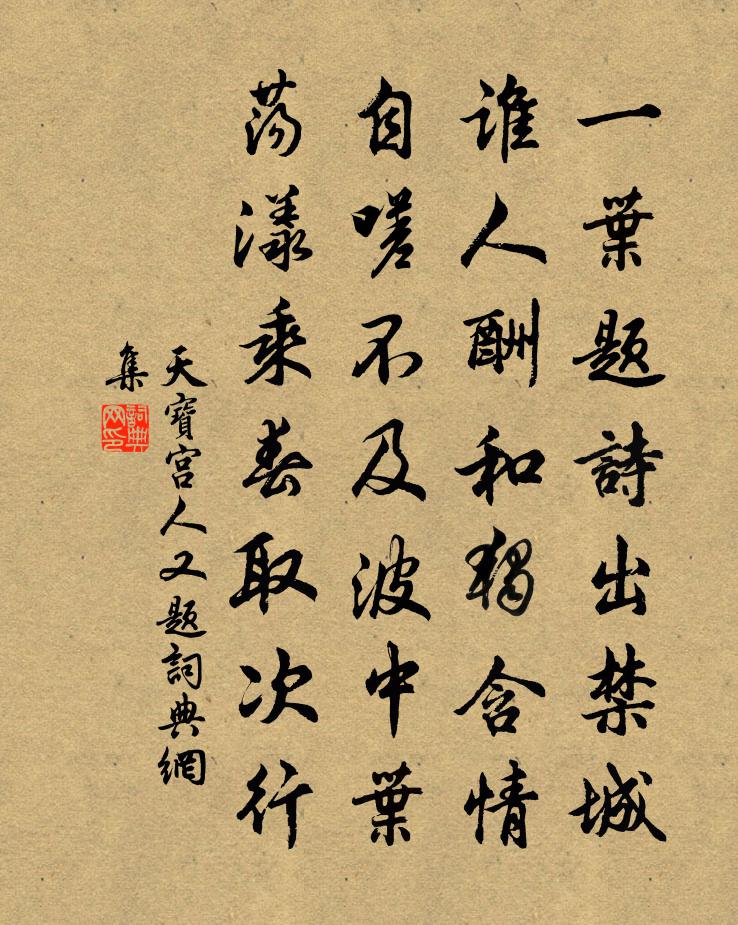 一葉题詩出禁城
誰人酬和獨含情
自嗟不及波中葉
荡漾乘春取次行
天寶宮人又题詞典網
集
詞典
网印